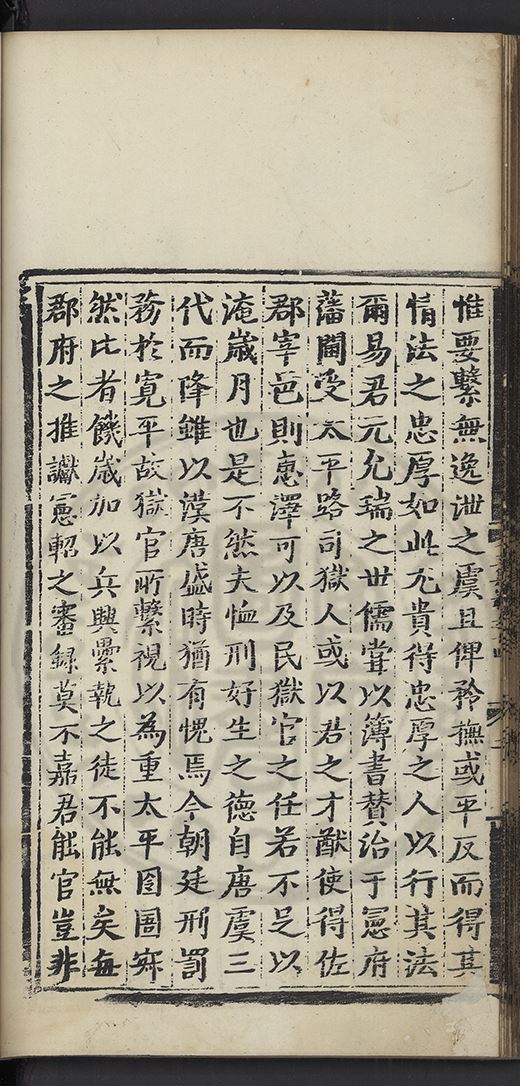 惟要繫無逸泄之虞且俾矜撫或平反而得其
情法之忠厚如此尤貴得忠厚之人以行其法
爾易君元允瑞之世儒甞以簿書賛治于憲府
藩閫受太平路司獄人或以君之才猷使得佐
郡宰邑則惠澤可以及民獄官之任若不足以
淹歲月也是不然夫恤刑好生之德自唐虞三
代而降雖以漢唐盛時猶有愧焉今朝廷刑罰
務於寛平故獄官所繫視以為重太平囹圄寂
然比者饑歲加以兵興纍執之徒不能無矣每
郡府之推讞憲軺之審録莫不嘉君能官豈非